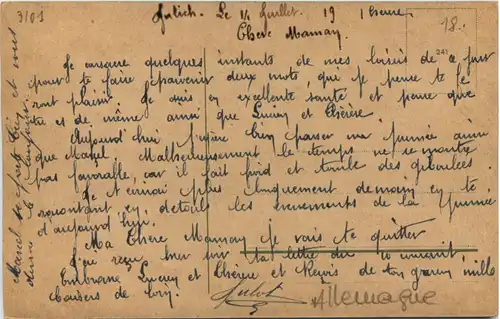 3101
Julich. Le 1/ Juillet. 19 1 heure.
Chere Maman. 18.
241
Je consacre quelques instants de mes loisirs de ce jour
pour te faire parvenir deux mots, qui je pense te
ront plaisir Je suis en excellente santé et pense que
être es de même ainsi que Lucien et Thérèse
Aujourd'hui j'espère bien passer ma journée ainsi
que Marcel Malheureusement le temps ne se montre
pas favorable, car il fait froid et tombe des giboulées
Je t'ecrirai plus longuement demain en te
racontant en détails les évènements de la journée
d'aujourd'hui.
Ma Chère Maman je vais te quitter
J'ai reçu hier soir ta lettre du 10 courant
Embrasse Lucien et Thérèse et Reçois de ton garçon mille
baisers de loin.
Marcel se et vous
Allemagne